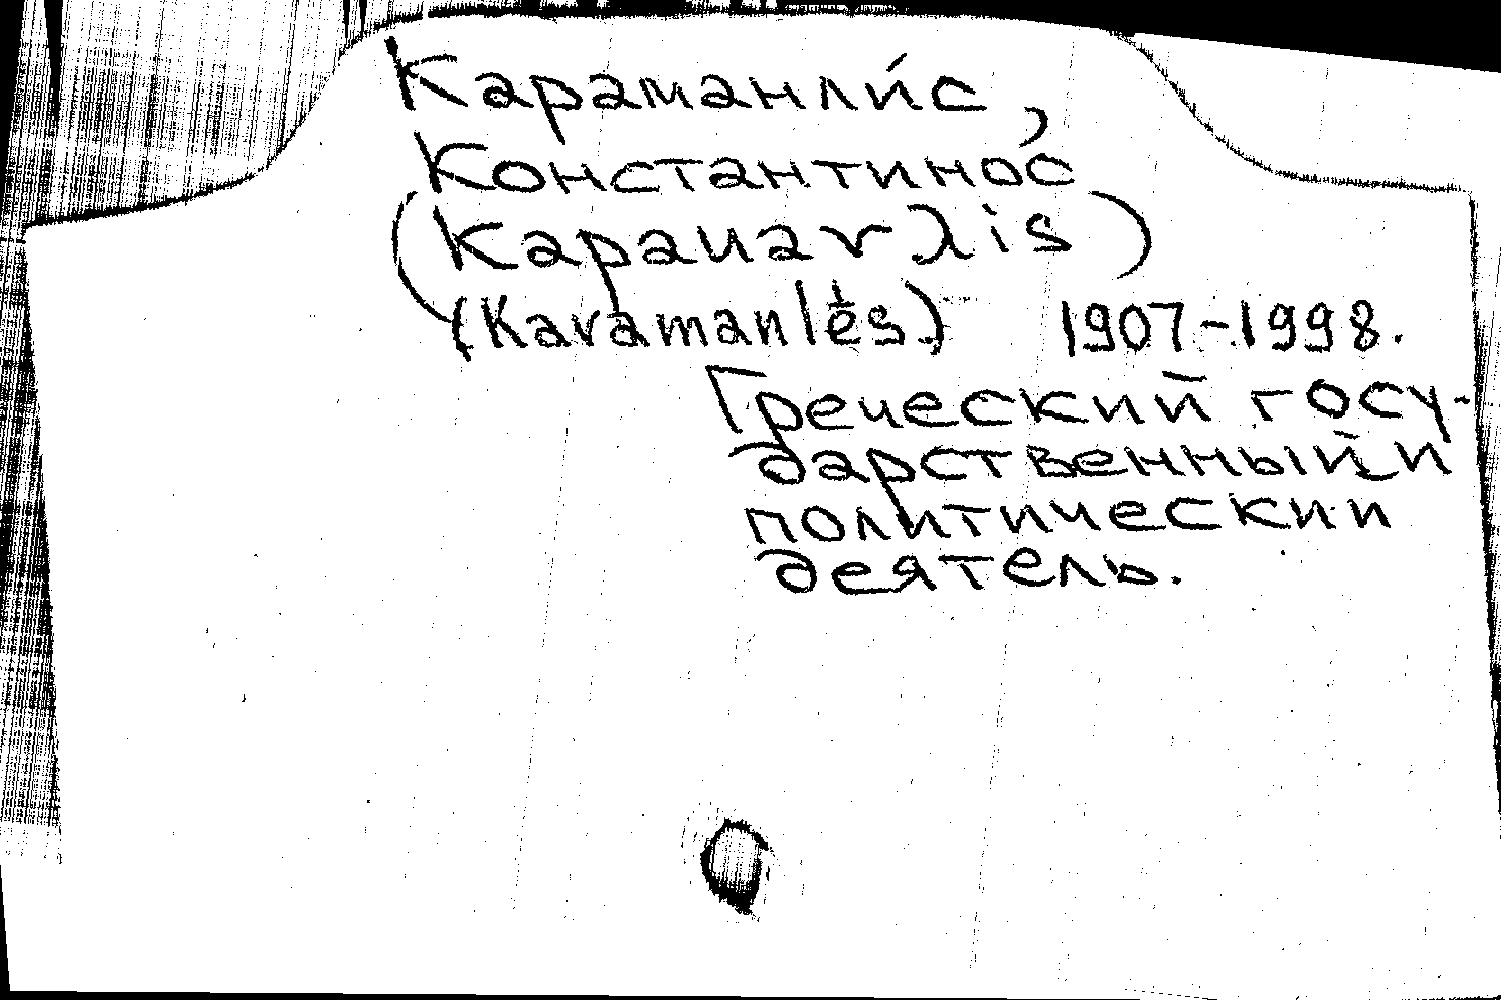 Караманли́с,
Константинос
(Караиаvλis)
(Karamanlės) 1907-1998.
Греческий госу-
дарственный и
политический
деятель.